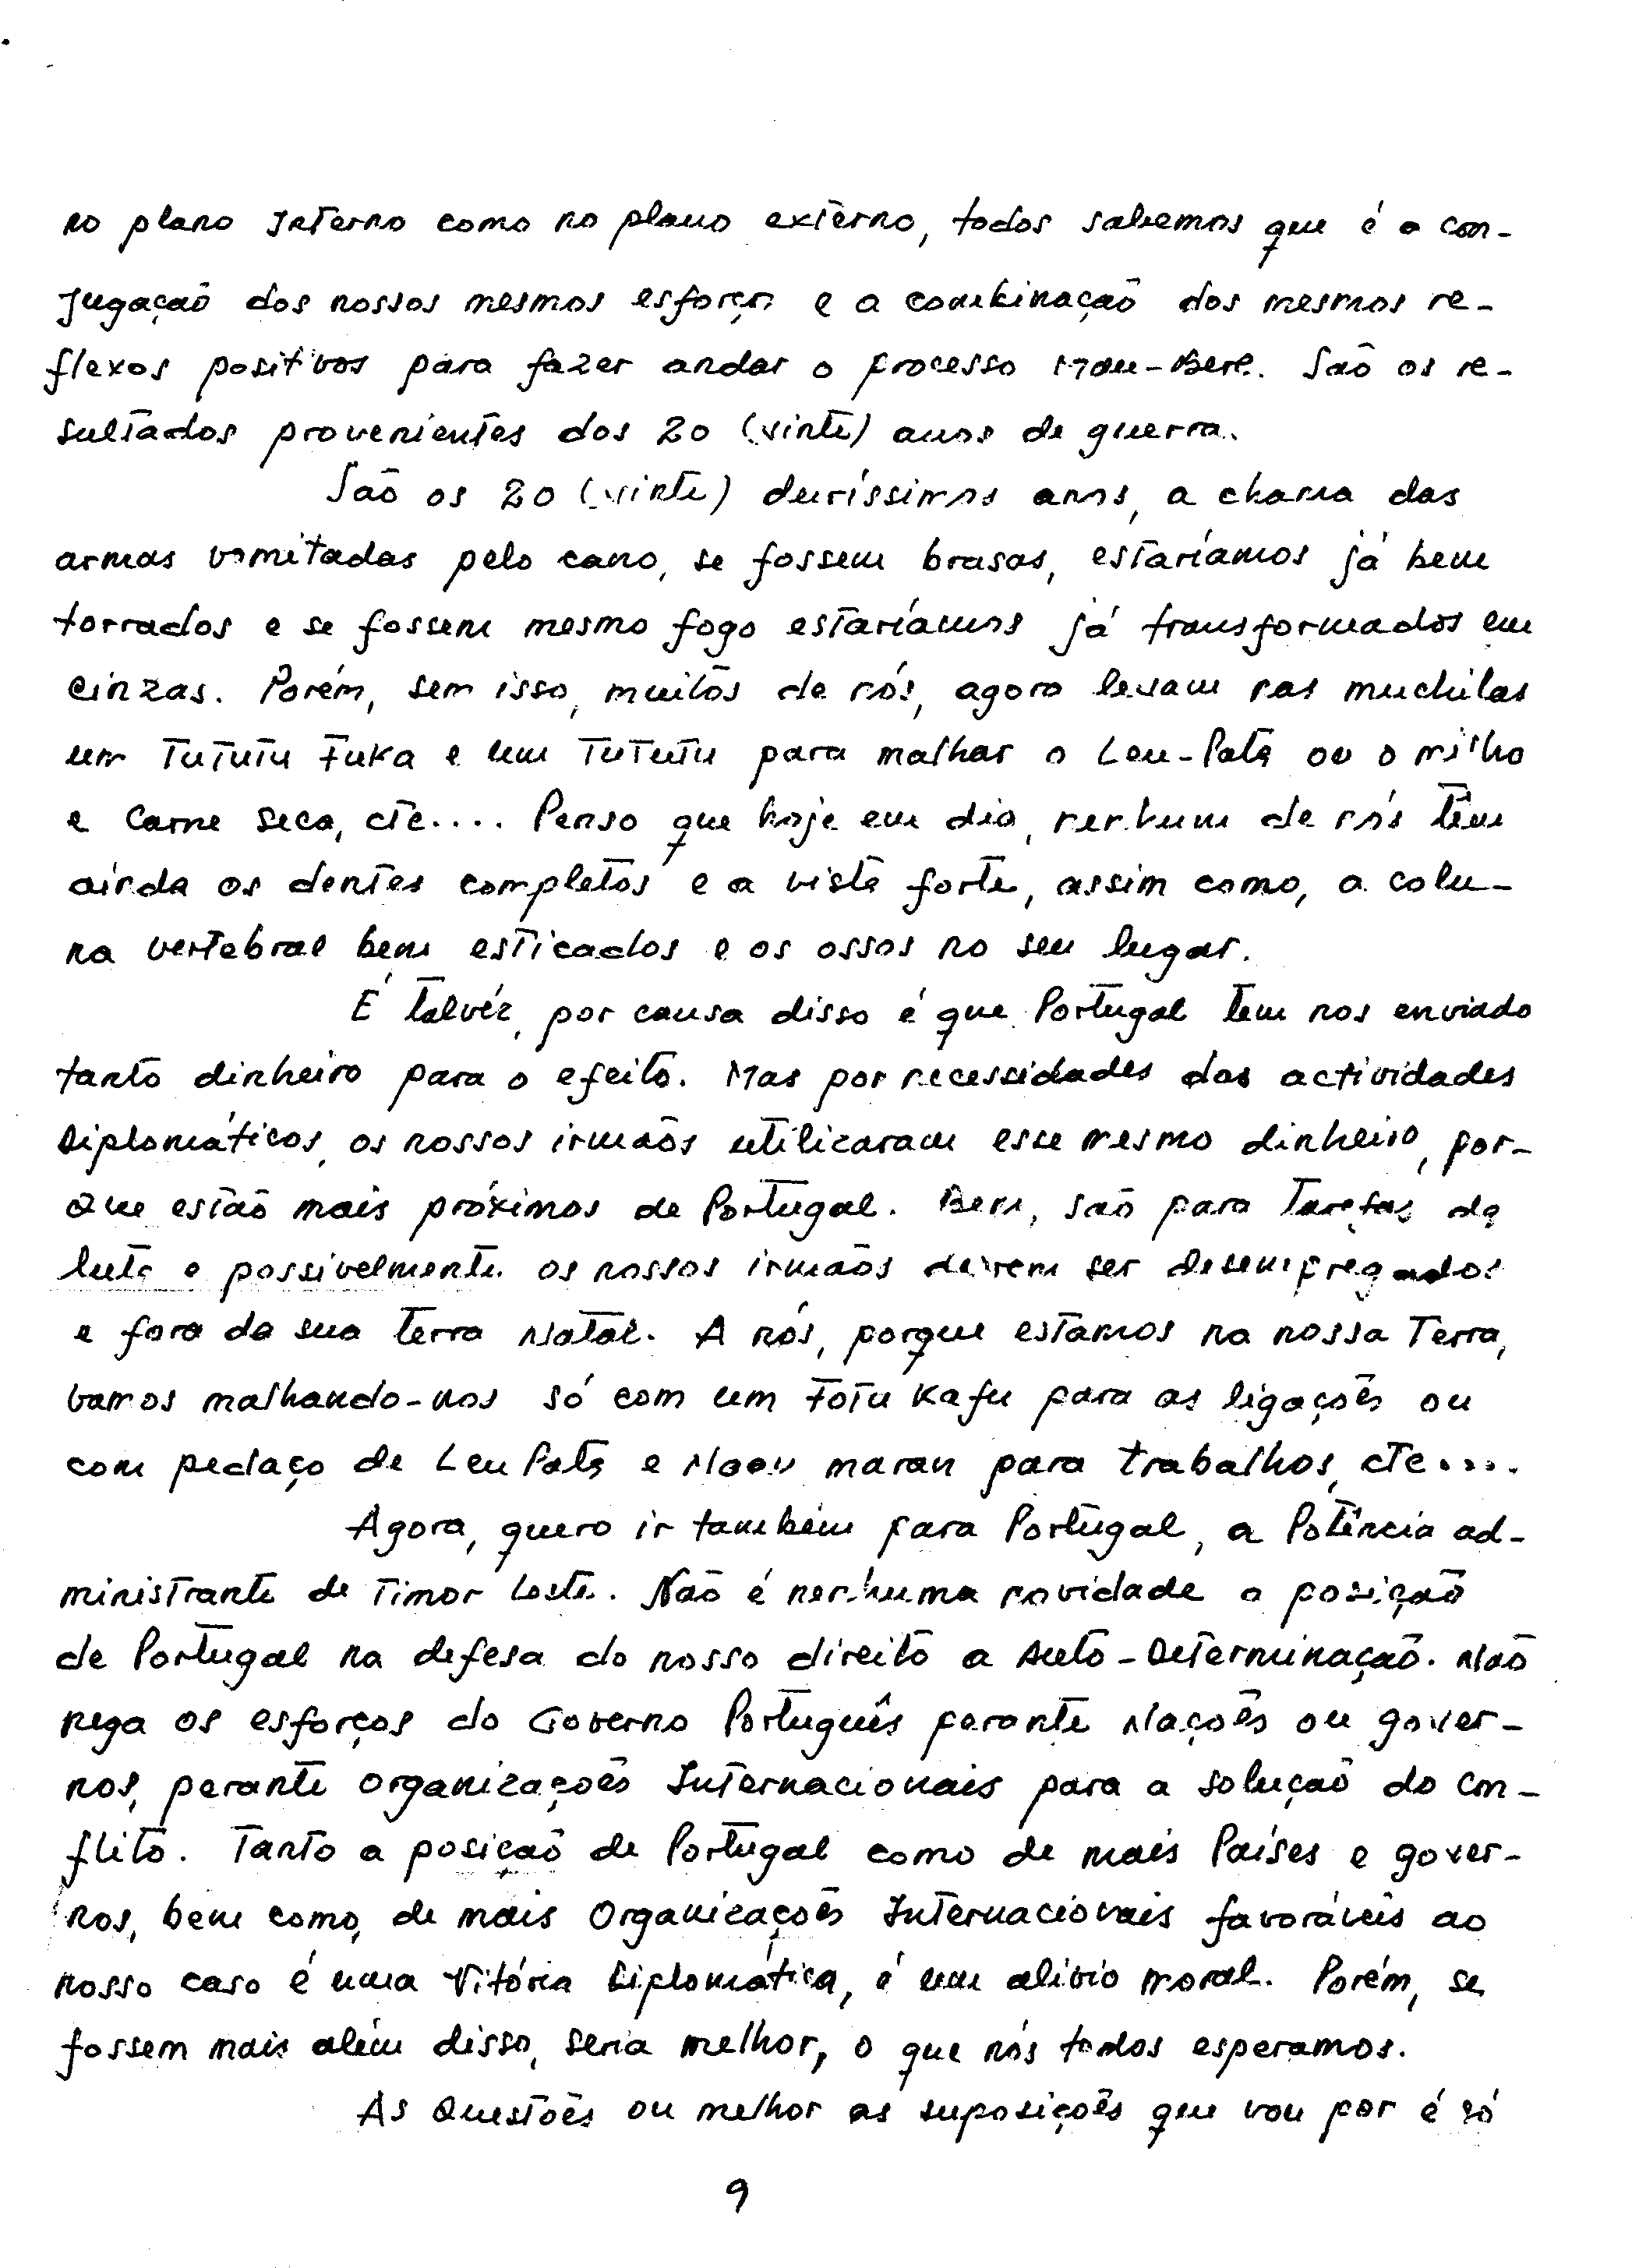 no plano Interno como no plano externo, todos sabemos que é a con-
jugação dos nossos mesmos esforços e a combinação dos mesmos re-
flexos positivos para fazer andar o processo Mau-Bere. São os re-
sultados provenientes dos 20 (vinte) anos de guerra.
São os 20 (vinte) duríssimos anos, a chama das
armas vomitadas pelo cano, se fossem brasas, estaríamos já bem
torrados e se fossem mesmo fogo estaríamos já transformados em
cinzas. Porém, sem isso, muitos de nós, agora levam nas muchilas
um Tututu Fuka e um Tututu para malhar o Leu-Pata ou o milho
e carne seca, etc.... Penso que hoje em dia, nenhum de nós têm
ainda os dentes completos e a vista forte, assim como, a colu-
na vertebral bem esticados e os ossos no seu lugar.
É talvéz, por causa disso é que Portugal tem nos enviado
tanto dinheiro para o efeito. Mas por necessidades das actividades
Diplomáticos, os nossos irmãos utilizaram esse mesmo dinheiro, por-
que estão mais próximos de Portugal. Bem, são para Tarefas da
luta e possivelmente os nossos irmãos devem ser desempregados
e fora da sua Terra Natal. A nós, porque estamos na nossa Terra,
vamos malhando-nos só com um Fotu Kafu para as ligações ou
com pedaço de Leu Pata e maran para trabalhos, etc....
Agora, quero ir também para Portugal, a Potência ad-
ministrante de Timor Leste. Não é nenhuma novidade a posição
de Portugal na defesa do nosso direito a Auto-Determinação. Não
nega os esforços do Governo Português perante Nações ou gover-
nos, perante organizações Internacionais para a solução do con-
flito. Tanto a posição de Portugal como de mais Países e gover-
nos, bem como, de mais Organizações Internacionais favoráveis ao
nosso caso é uma Vitória Diplomática, é um alívio moral. Porém, se
fossem mais além disso, seria melhor, o que nós todos esperamos.
As Questões ou melhor as suposições que vou por é só
9